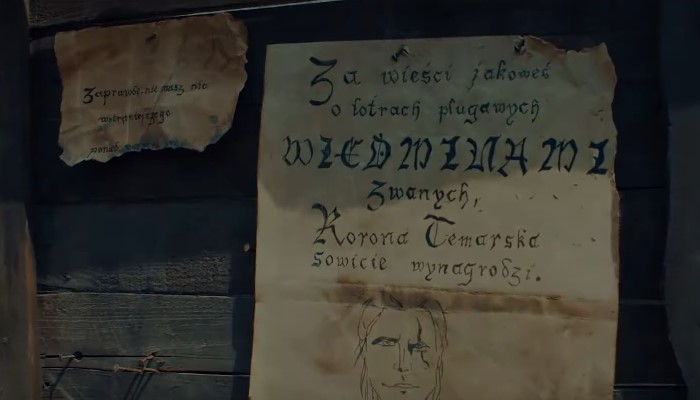 Zaprawdę, nie masz nic
wstrętniejszego
ponad
Za wieści jakoweś
o łotrach plugawych
WIEDMINAMI
Zwanych,
Korona Temarska
sowicie wynagrodzi.